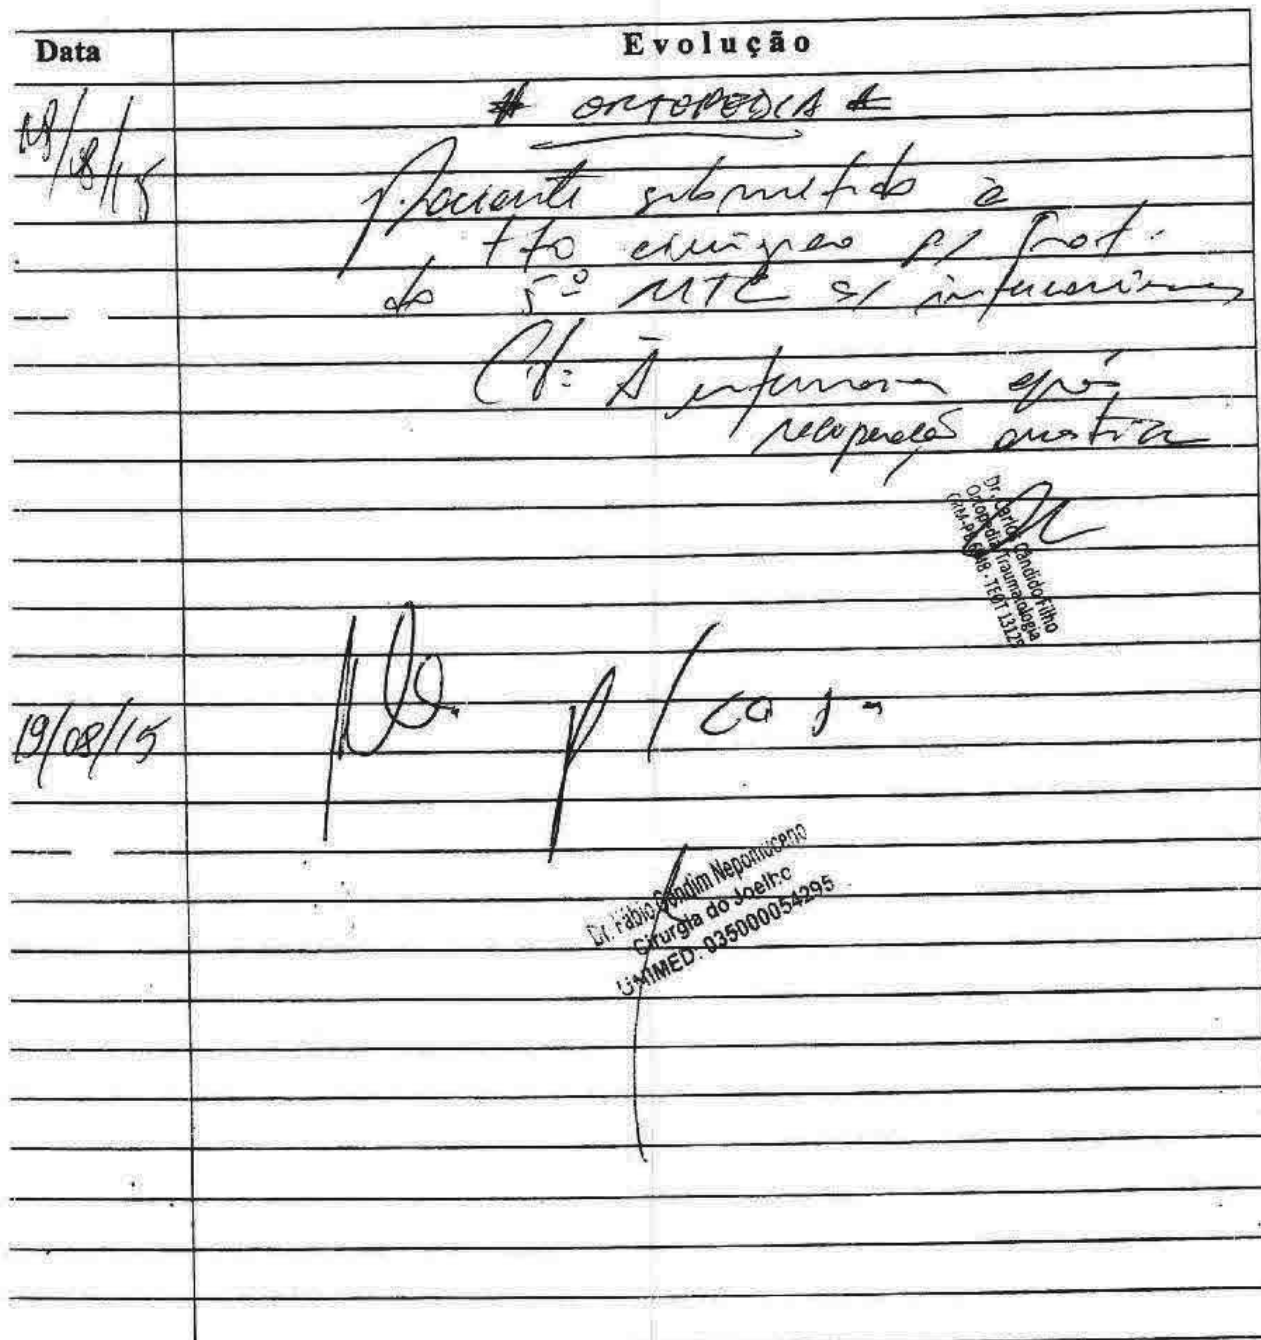 Data Evolução
18/08/15 # ORTOPEDIA #
Paciente submetido à
tto cirúrgico p/ frat.
do 5º MTC s/ intercorrências
Cd: À enfermaria após
recuperação anestésica
Dr. Carlos Cândido Filho
Ortopedia Traumatologia
CRM-PB TEOT 13125
19/08/15 p/ casa
Dr. Fábio Gondim Nepomuceno
Cirurgia do Joelho
UNIMED: 035000054295